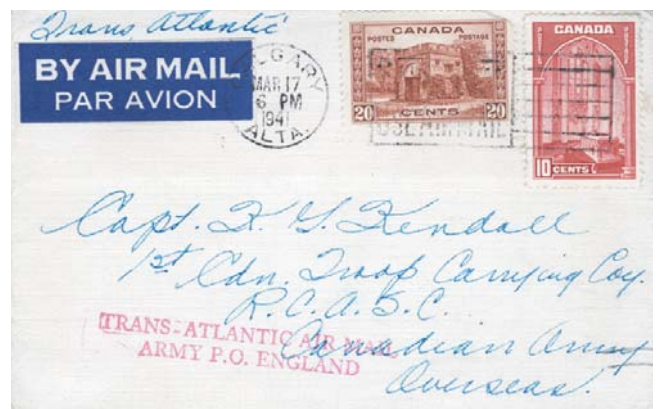 Trans Atlantic
BY AIR MAIL
PAR AVION
CALGARY
MAR 17
6 PM
1941
ALTA.
CANADA
POSTES POSTAGE
20 CENTS 20
USE AIR MAIL
CANADA
10 CENTS
Capt. K. G. Kendall
1st Cdn. Troop Carrying Coy.
R.C.A.S.C.
Canadian Army
Overseas.
TRANS-ATLANTIC AIR MAIL
ARMY P.O. ENGLAND